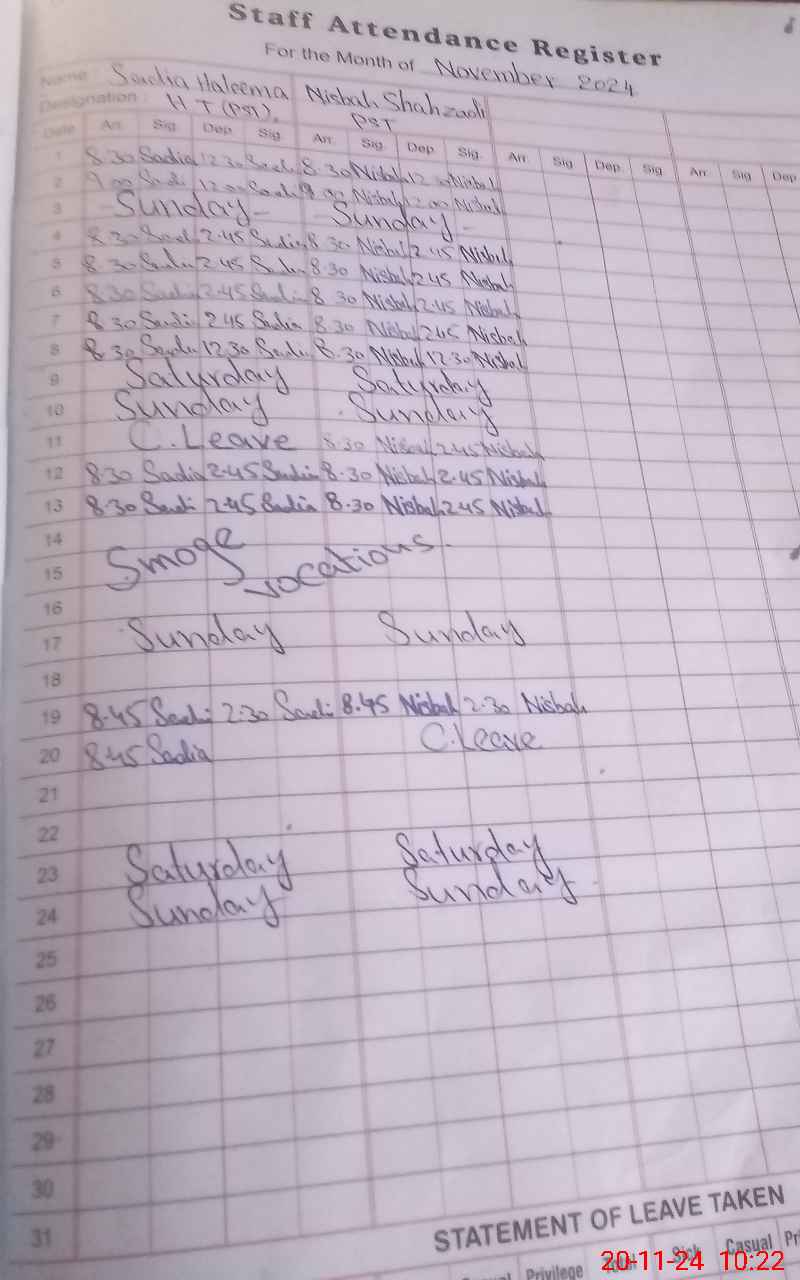 Staff Attendance Register
For the Month of November 2024
Name Sadia Haleema Nisbah Shahzadi
Designation: H T (PST). PST
Date Arr. Sig. Dep. Sig. Arr. Sig. Dep. Sig. Arr. Sig Dep. Sig Arr. Sig Dep
1 8.30 Sadia 12.30 Sadi 8.30 Nisbah 12.30 Nisbah
2 9.00 Sadi 12.00 Sadi 9.00 Nisbah 12.00 Nisbah
3 -Sunday- Sunday-
4 8.30 Sadi 2.45 Sadia 8.30 Nisbah 2.45 Nisbah
5 8.30 Sadia 2.45 Sadia 8.30 Nisbah 2.45 Nisbah
6 8.30 Sadia 2.45 Sadia 8.30 Nisbah 2.45 Nisbah
7 8.30 Sadia 2.45 Sadia 8.30 Nisbah 2.45 Nisbah
8 8.30 Sadia 12.30 Sadia 8.30 Nisbah 12.30 Nisbah
9 Satyrday Satyrday
10 Sunday Sunday
11 C.Leave 8.30 Nisbah 2.45 Nisbah
12 8.30 Sadia 2.45 Sadia 8.30 Nisbah 2.45 Nisbah
13 8.30 Sadi 2.45 Sadia 8.30 Nisbah 2.45 Nisbah
14 Smoge
15 vocations.
16
17 Sunday Sunday
18
19 8.45 Sadi 2:30 Sadi 8.45 Nisbah 2.30 Nisbah
20 8.45 Sadia C.Leave
21
22
23 Satyrday Saturday
24 Sunday Sunday
25
26
27
28
29
30
31
STATEMENT OF LEAVE TAKEN
Privilege Total Sick Casual
20-11-24 10:22